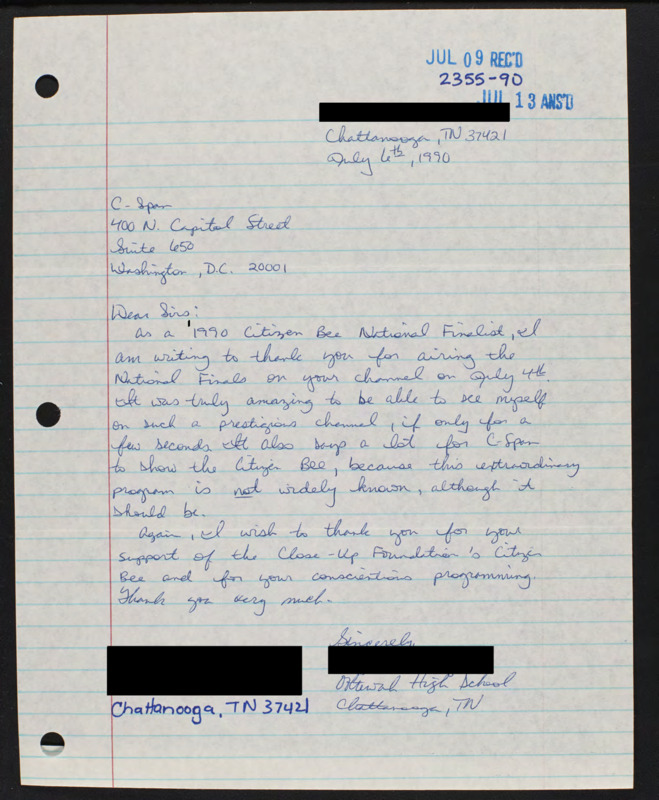 JUL 09 REC'D
2355-90
JUL 13 ANS'D
Chattanooga, TN 37421
July 6th, 1990
C-Span
400 N. Capitol Street
Suite 650
Washington, D.C. 20001
Dear Sirs:
As a 1990 Citizen Bee National Finalist, I
am writing to thank you for airing the
National Finals on your channel on July 4th.
It was truly amazing to be able to see myself
on such a prestigious channel, if only for a
few seconds. It also says a lot for C-Span
to show the Citizen Bee, because this extraordinary
program is not widely known, although it
should be.
Again, I wish to thank you for your
support of the Close-Up Foundation's Citizen
Bee and for your conscientious programming.
Thank you very much.
Sincerely,
Ooltewah High School
Chattanooga, TN
Chattanooga, TN 37421